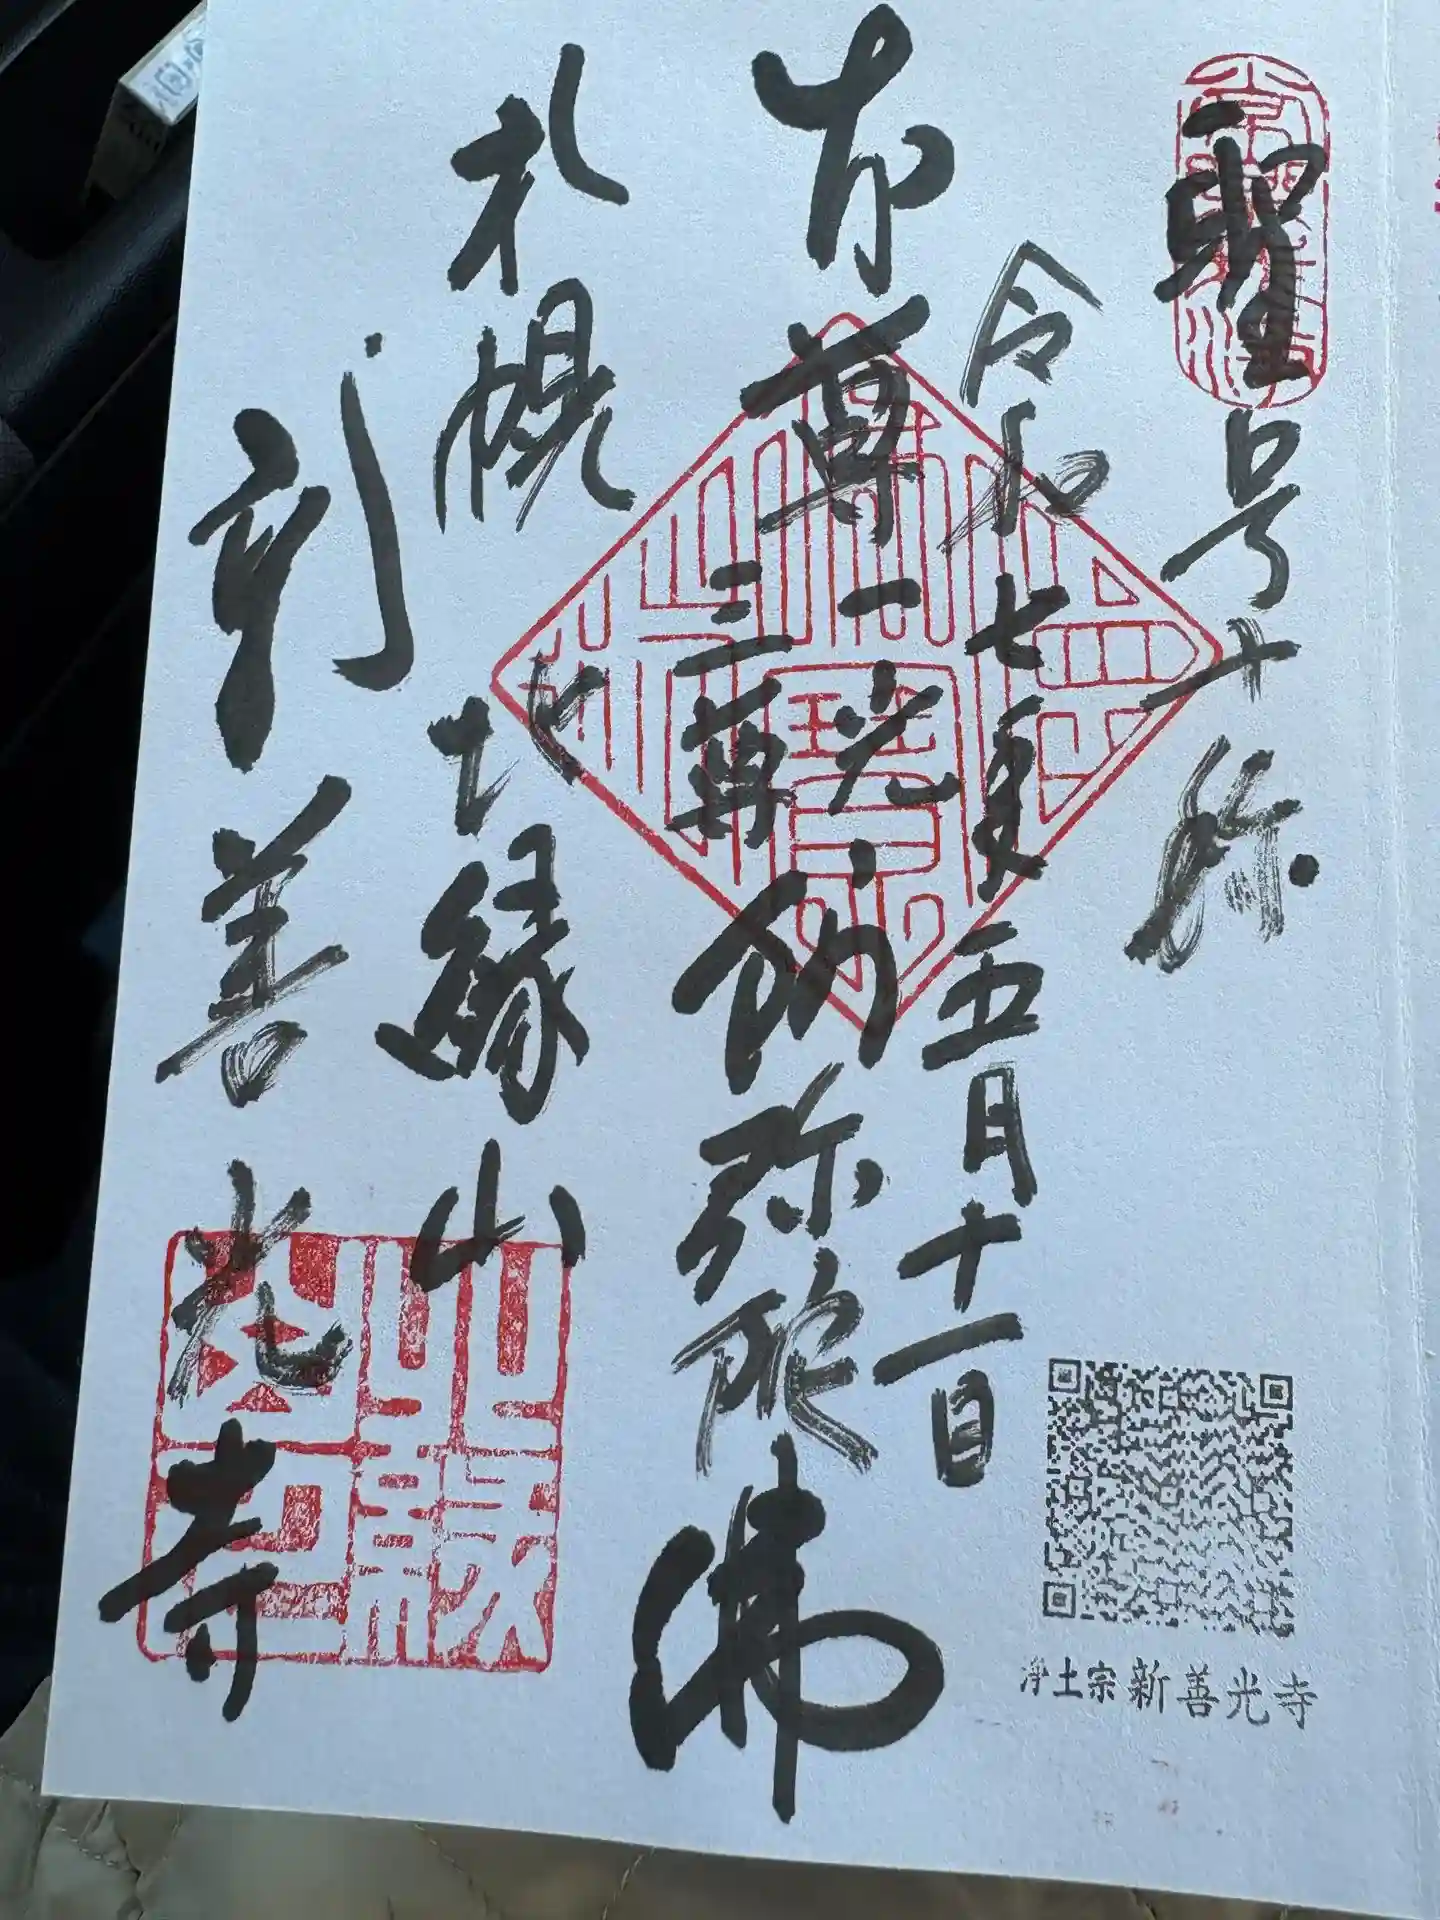 聖号十称
令和七年五月十一日
本尊
一光
三尊
阿弥陀佛
札幌
北縁山
新善光寺
浄土宗新善光寺